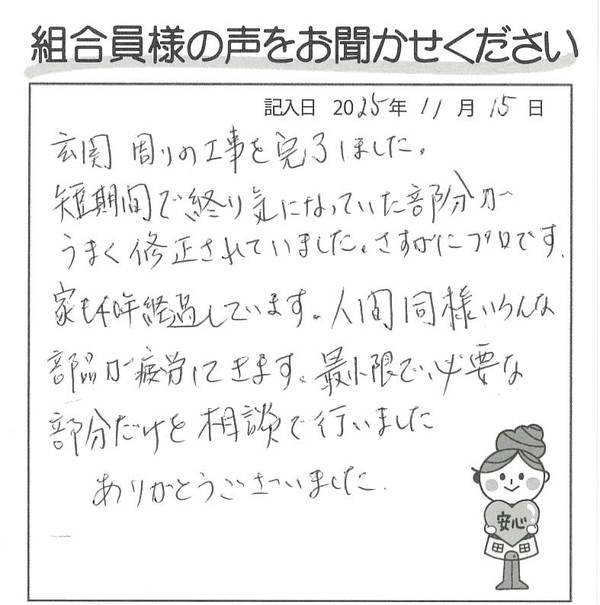 組合員様の声をお聞かせください
記入日 2025年 11月 15日
玄関周りの工事を完了しました。
短期間で終り気になっていた部分が
うまく修正されていました。さすがにプロです。
家も40年経過しています。人間同様いろんな
部品が疲労してきます。最小限で、必要な
部分だけを相談で行いました
ありがとうございました.
安心